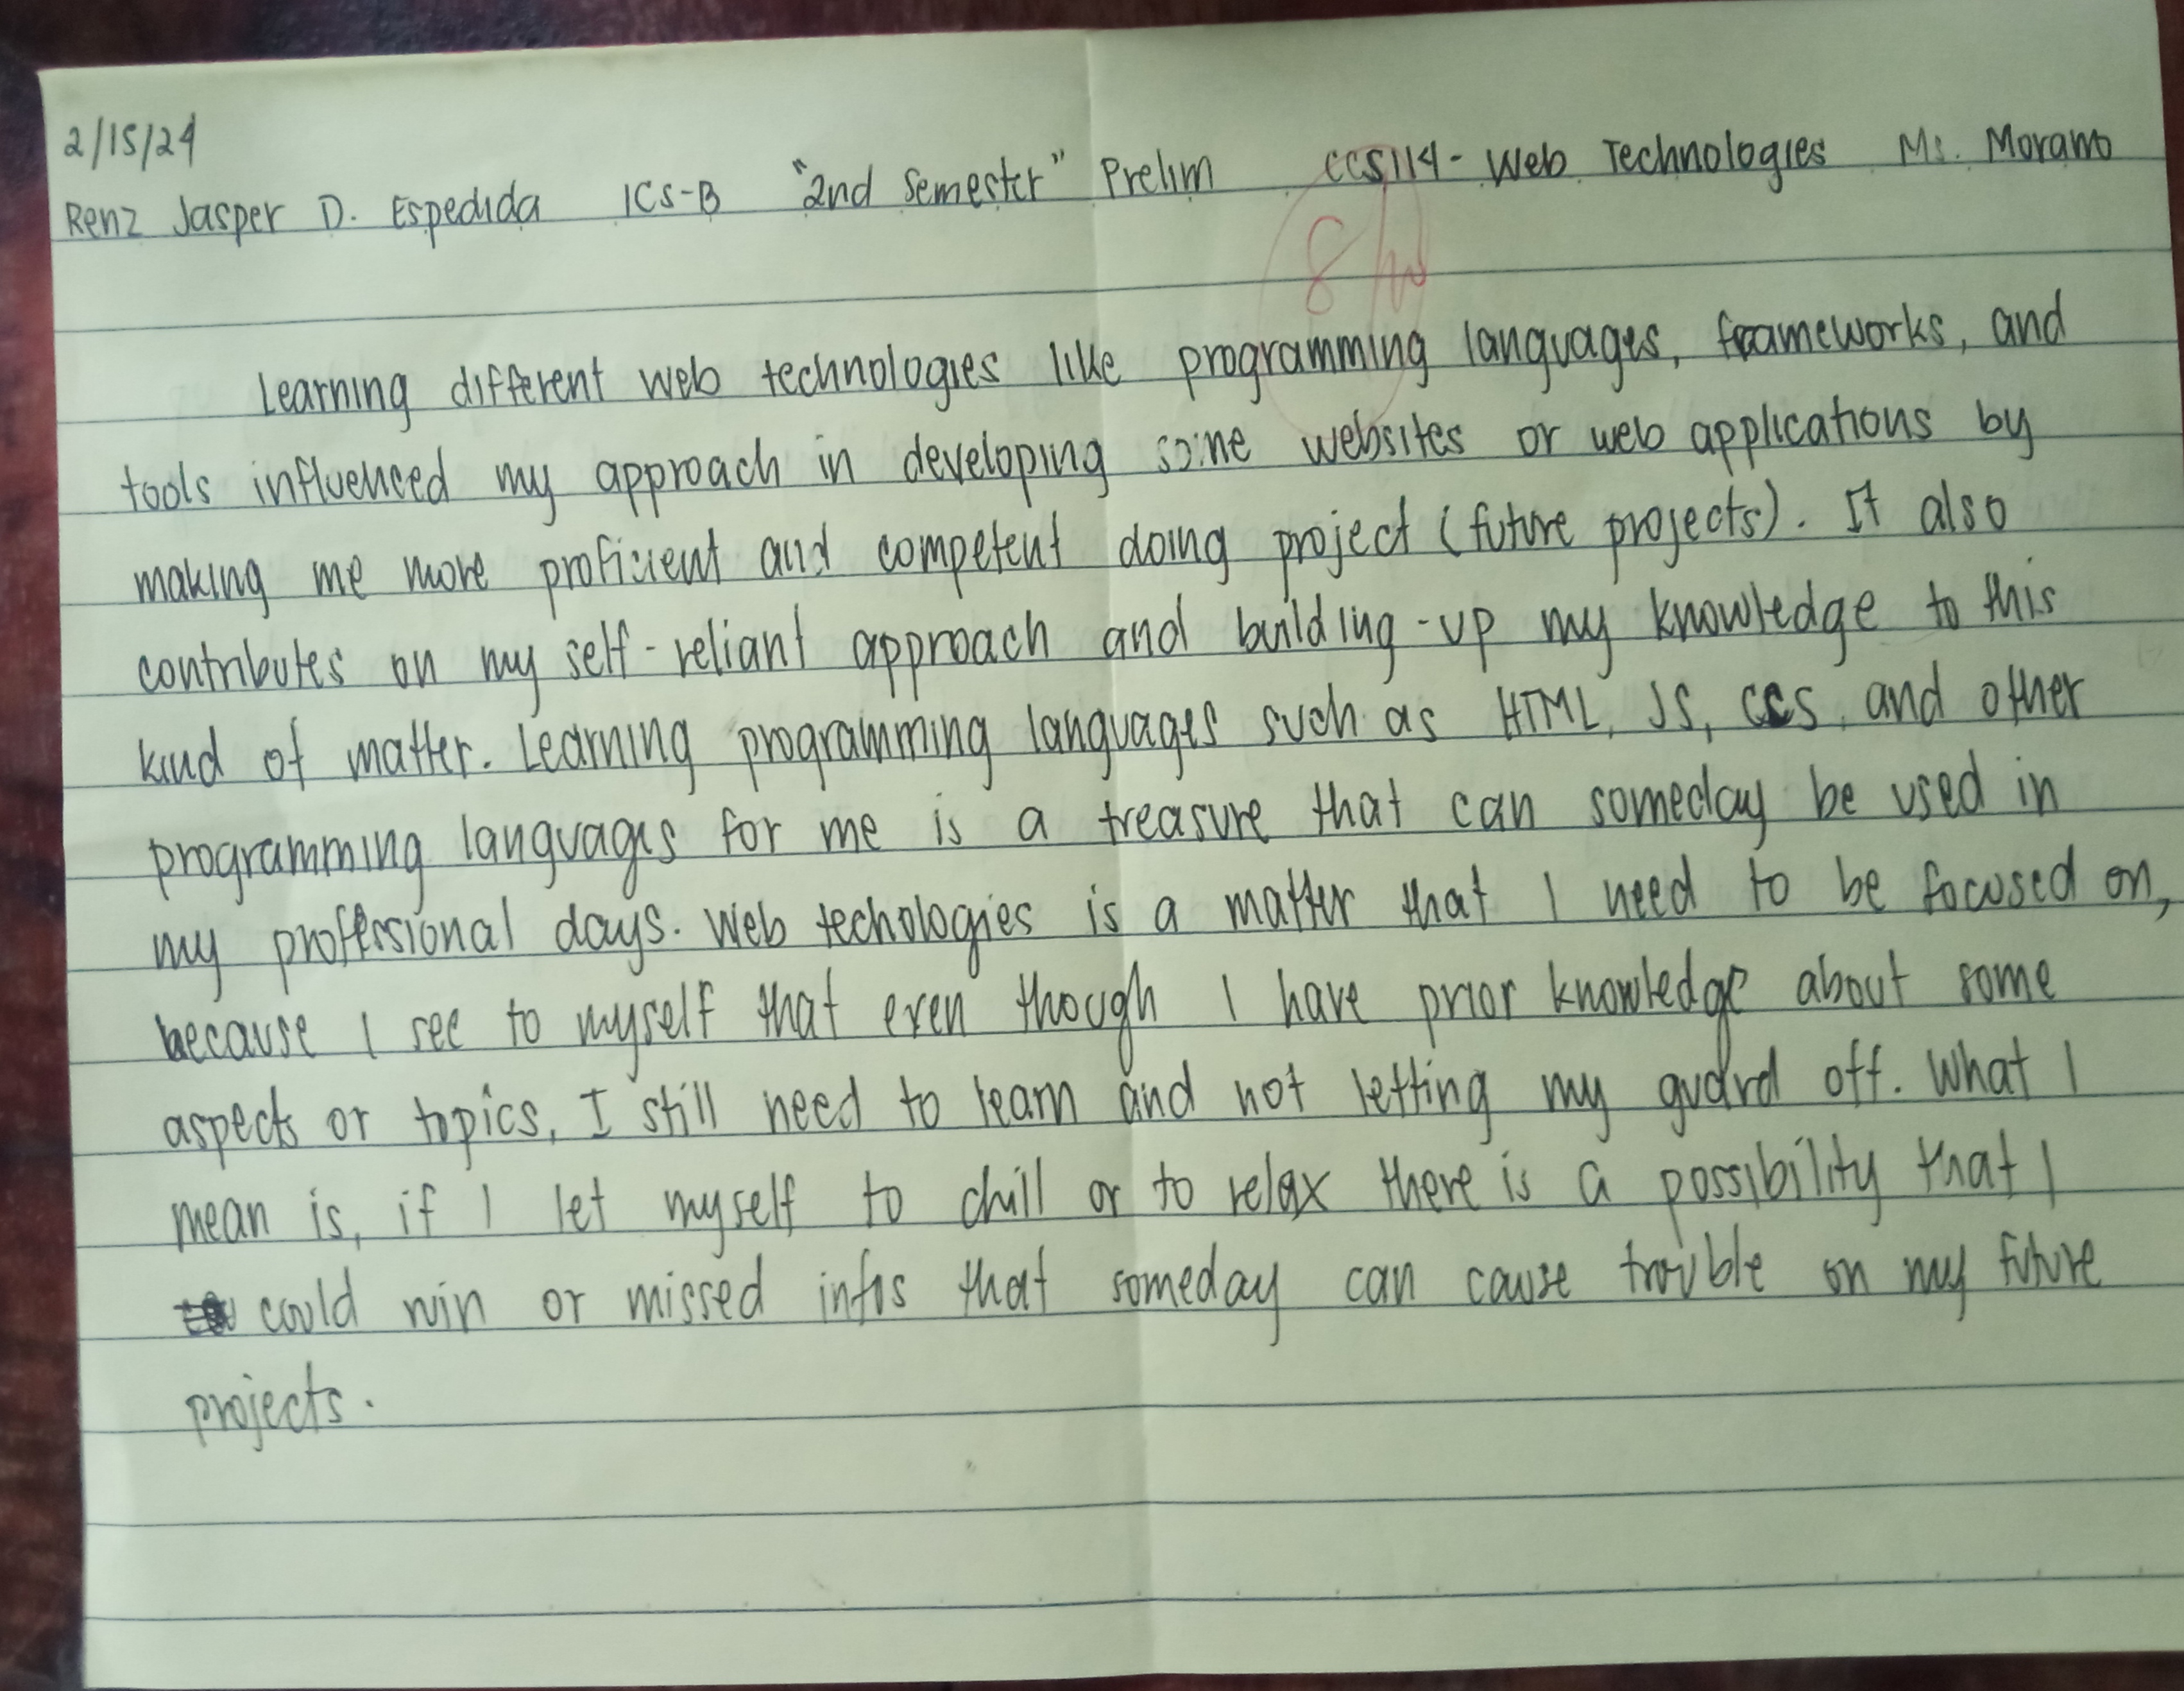 2/15/24
Renz Jasper D. Espedida 1CS-B "2nd Semester" Prelim CCS114 - Web Technologies Ms. Morano
8/10
Learning different web technologies like programming languages, frameworks, and
tools influenced my approach in developing some websites or web applications by
making me more proficient and competent doing project (future projects). It also
contributes on my self-reliant approach and building-up my knowledge to this
kind of matter. Learning programming languages such as HTML, JS, CCS, and other
programming languages for me is a treasure that can someday be used in
my proffessional days. Web techologies is a matter that I need to be focused on,
because I see to myself that even though I have prior knowledge about some
aspects or topics, I still need to learn and not letting my guard off. What I
mean is, if I let myself to chill or to relax there is a possibility that I
could ruin or missed infos that someday can cause trouble on my future
projects.